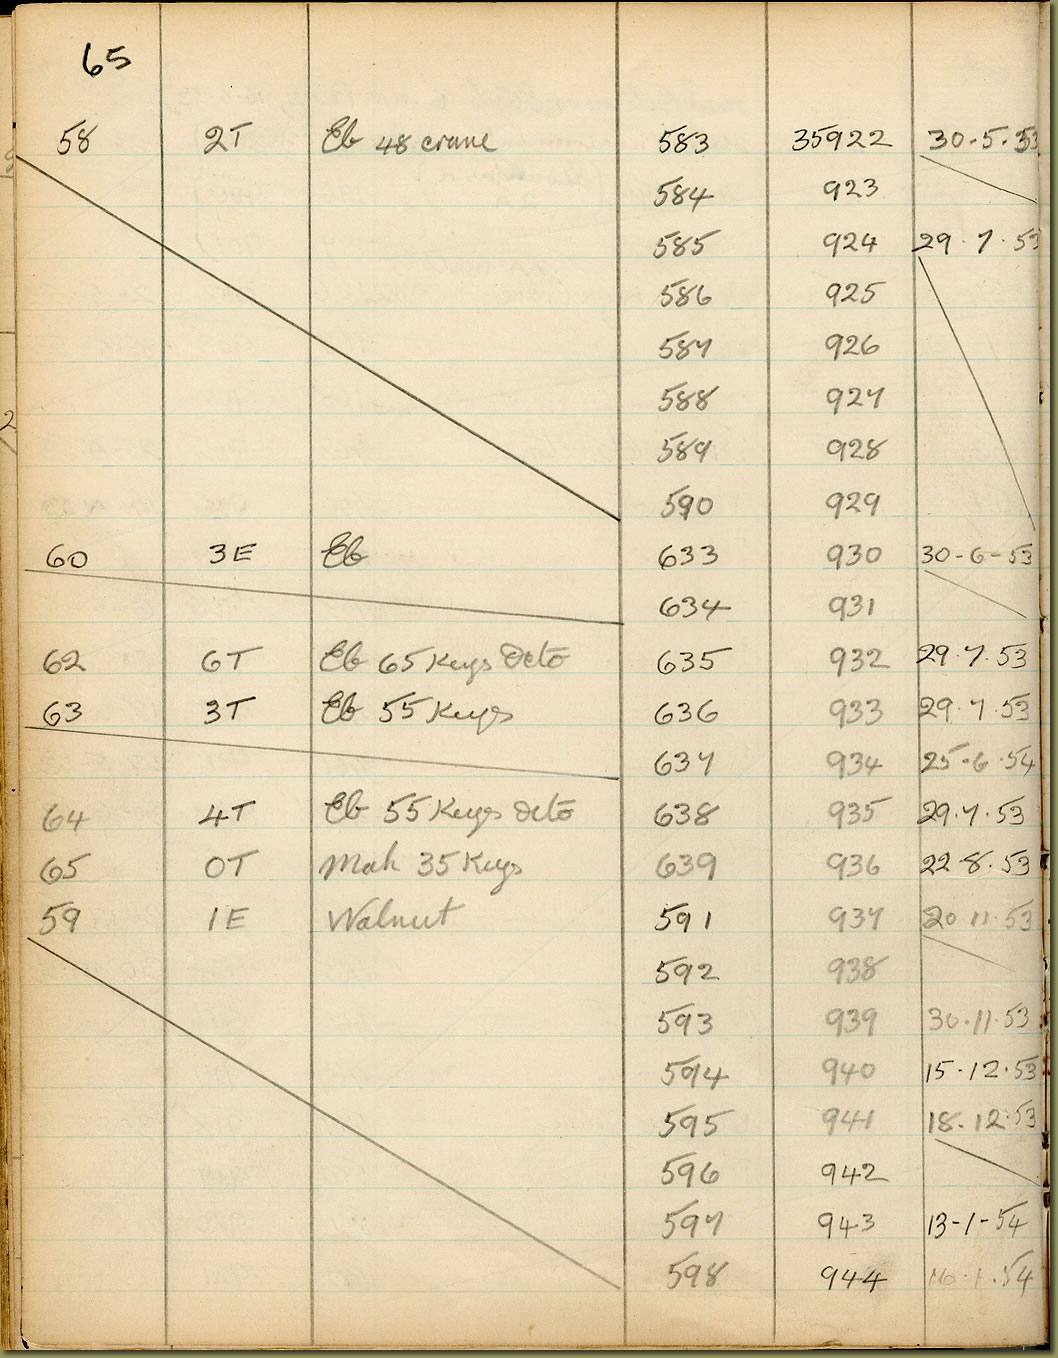 65
58 2T Eb 48 crane 583 35922 30-5-53
584 923
585 924 29.7.53
586 925
587 926
588 927
589 928
590 929
60 3E Eb 633 930 30-6-53
634 931
62 6T Eb 65 Keys Octo 635 932 29.7.53
63 3T Eb 55 Keys 636 933 29.7.53
637 934 25.6.54
64 4T Eb 55 Keys Octo 638 935 29.7.53
65 0T Mah 35 Keys 639 936 22.8.53
59 1E Walnut 591 937 20 11.53
592 938
593 939 30.11.53
594 940 15.12.53
595 941 18.12.53
596 942
597 943 13-1-54
598 944 16.1.54
2